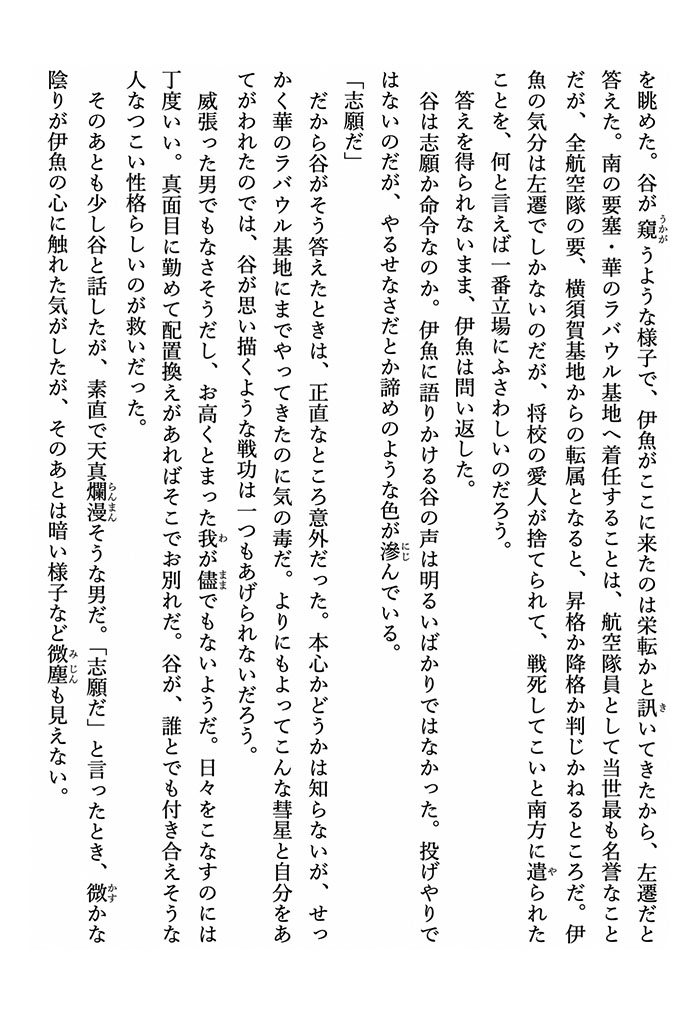 を眺めた。谷が窺うような様子で、伊魚がここに来たのは栄転かと訊いてきたから、左遷だと
答えた。南の要塞・華のラバウル基地へ着任することは、航空隊員として当世最も名誉なこと
だが、全航空隊の要、横須賀基地からの転属となると、昇格か降格か判じかねるところだ。伊
魚の気分は左遷でしかないのだが、将校の愛人が捨てられて、戦死してこいと南方に遣られた
ことを、何と言えば一番立場にふさわしいのだろう。
答えを得られないまま、伊魚は問い返した。
谷は志願か命令なのか。伊魚に語りかける谷の声は明るいばかりではなかった。投げやりで
はないのだが、やるせなさだとか諦めのような色が滲んでいる。
「志願だ」
だから谷がそう答えたときは、正直なところ意外だった。本心かどうかは知らないが、せっ
かく華のラバウル基地にまでやってきたのに気の毒だ。よりにもよってこんな彗星と自分をあ
てがわれたのでは、谷が思い描くような戦功は一つもあげられないだろう。
威張った男でもなさそうだし、お高くとまった我が儘でもないようだ。日々をこなすのには
丁度いい。真面目に勤めて配置換えがあればそこでお別れだ。谷が、誰とでも付き合えそうな
人なつこい性格らしいのが救いだった。
そのあとも少し谷と話したが、素直で天真爛漫そうな男だ。「志願だ」と言ったとき、微かな
陰りが伊魚の心に触れた気がしたが、そのあとは暗い様子など微塵も見えない。